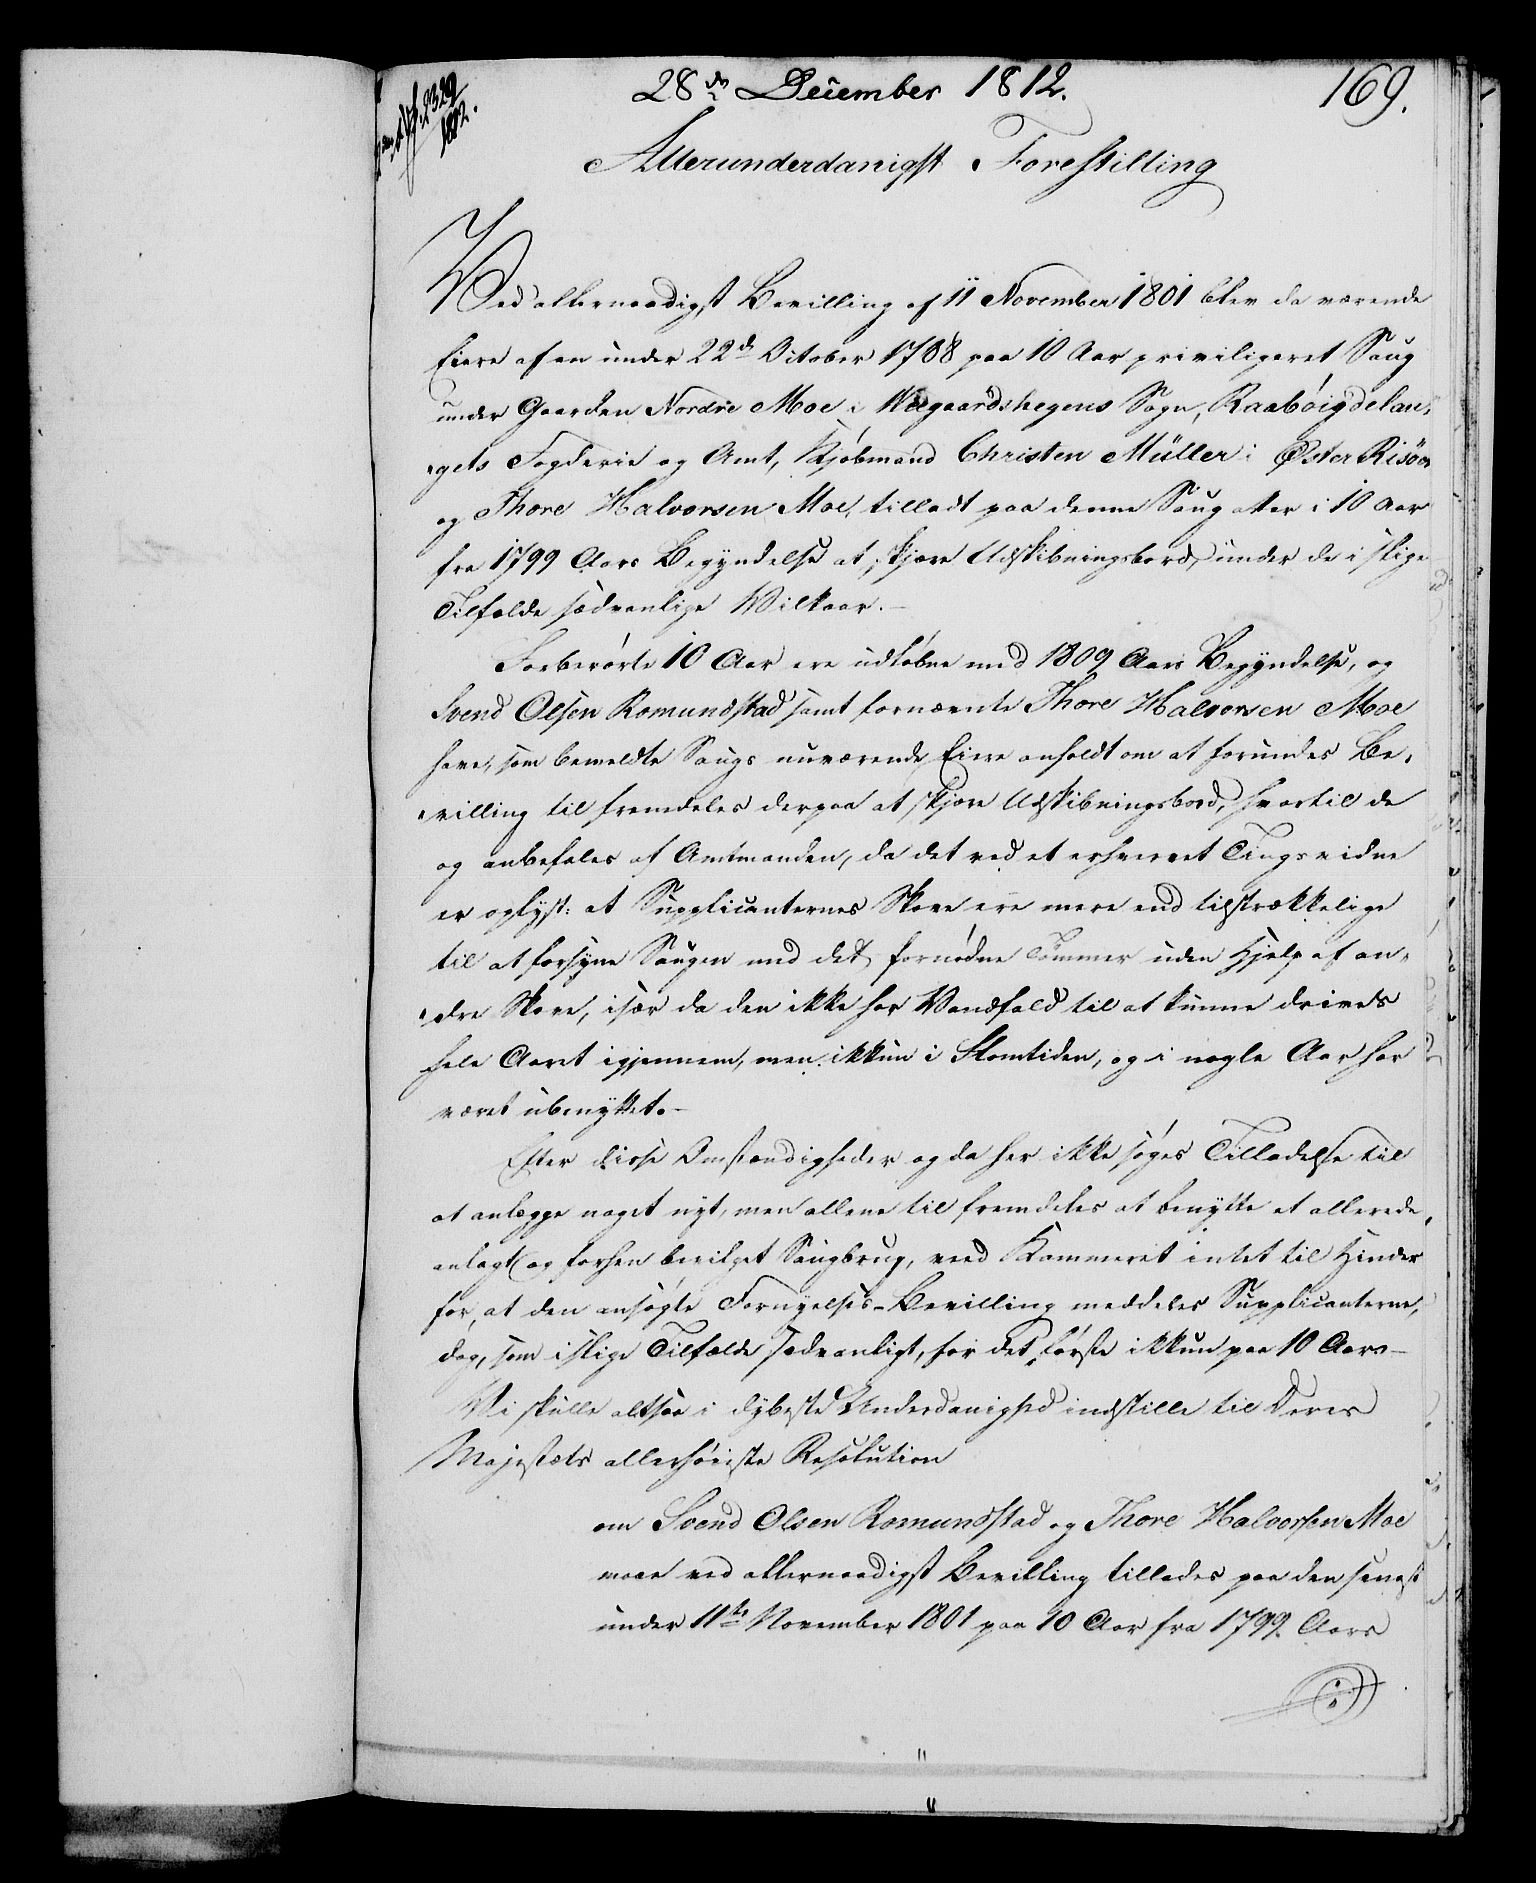 28de December 1812.
169.
2329
1812.
Allerunderdanigst Forestilling
Ved allernaadigst Bevilling af 11 November 1801 blev da værende
Eiere af en under 22de October 1788 paa 10 Aar privilegeret Saug
under Gaarden Nordre Moe i Wegaardshegens Sogn, Raabøigdelau-
gets Fogderie og Amt, Kjøbmand Christen Müller i Øster Risöer
og Thore Halvorsen Moe, tilladt paa denne Saug atter i 10 Aar
fra 1799 Aars Begyndelse at skjære Udskibningsbord, under de i slige
Tilfælde sædvanlige Vilkaar.-
Forberørte 10 Aar ere udløbne med 1809 Aars Begyndelse, og
Svend Olsen Romundstad samt fornævnte Thore Halvorsen Moe
have, som bemeldte Saugs nuværende Eiere anholdt om at forundes Be-
villing til fremdeles derpaa at skjære Udskibningsbord, hvortil de
og anbefales af Amtmanden, da det ved et erhvervet Tingsvidne
er oplyst: at Supplicanternes Skove ere mere end tilstrækkelige
til at forsyne Saugen med det fornødne Tømmer uden Hjelp af an-
dre Skove, især da den ikke har Vandfald til at kunne drives
hele Aaret igjennem, men ikkun i Flomtiden, og i nogle Aar har
været ubenyttet.-
Efter disse Omstændigheder og da her ikke søges Tilladelse til
at anlægge noget nyt, men allene til fremdeles at benytte et allerede
anlagt og forhen bevilget Saugbrug, veed Kammeret intet til Hinder
for, at den ansøgte Fornyelses-Bevilling meddeles Supplicanterne,
dog, som i slige Tilfælde sædvanligt, for det første ikkun paa 10 Aar.-
Vi skulle altsaa i dybeste Underdanighed indstille til Deres
Majestæts allerhøieste Resolution
om Svend Olsen Romundstad og Thore Halvorsen Moe
maae ved allernaadigst Bevilling tillades paa den senest
under 11te November 1801 paa 10 Aar fra 1799 Aars